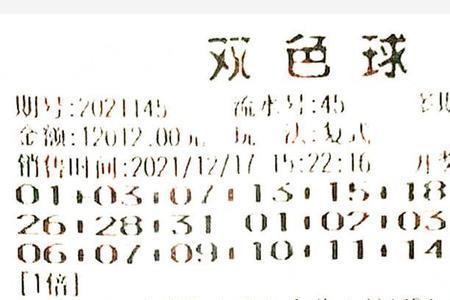 双色球
期号:2021145 流水号:45
金额:12012.00元 玩 法:复式
销售时间:2021/12/17 15:22:16 开奖
01 03 07 13 15 18
26 28 31 01 02 03
06 07 09 10 11 14
[1倍]